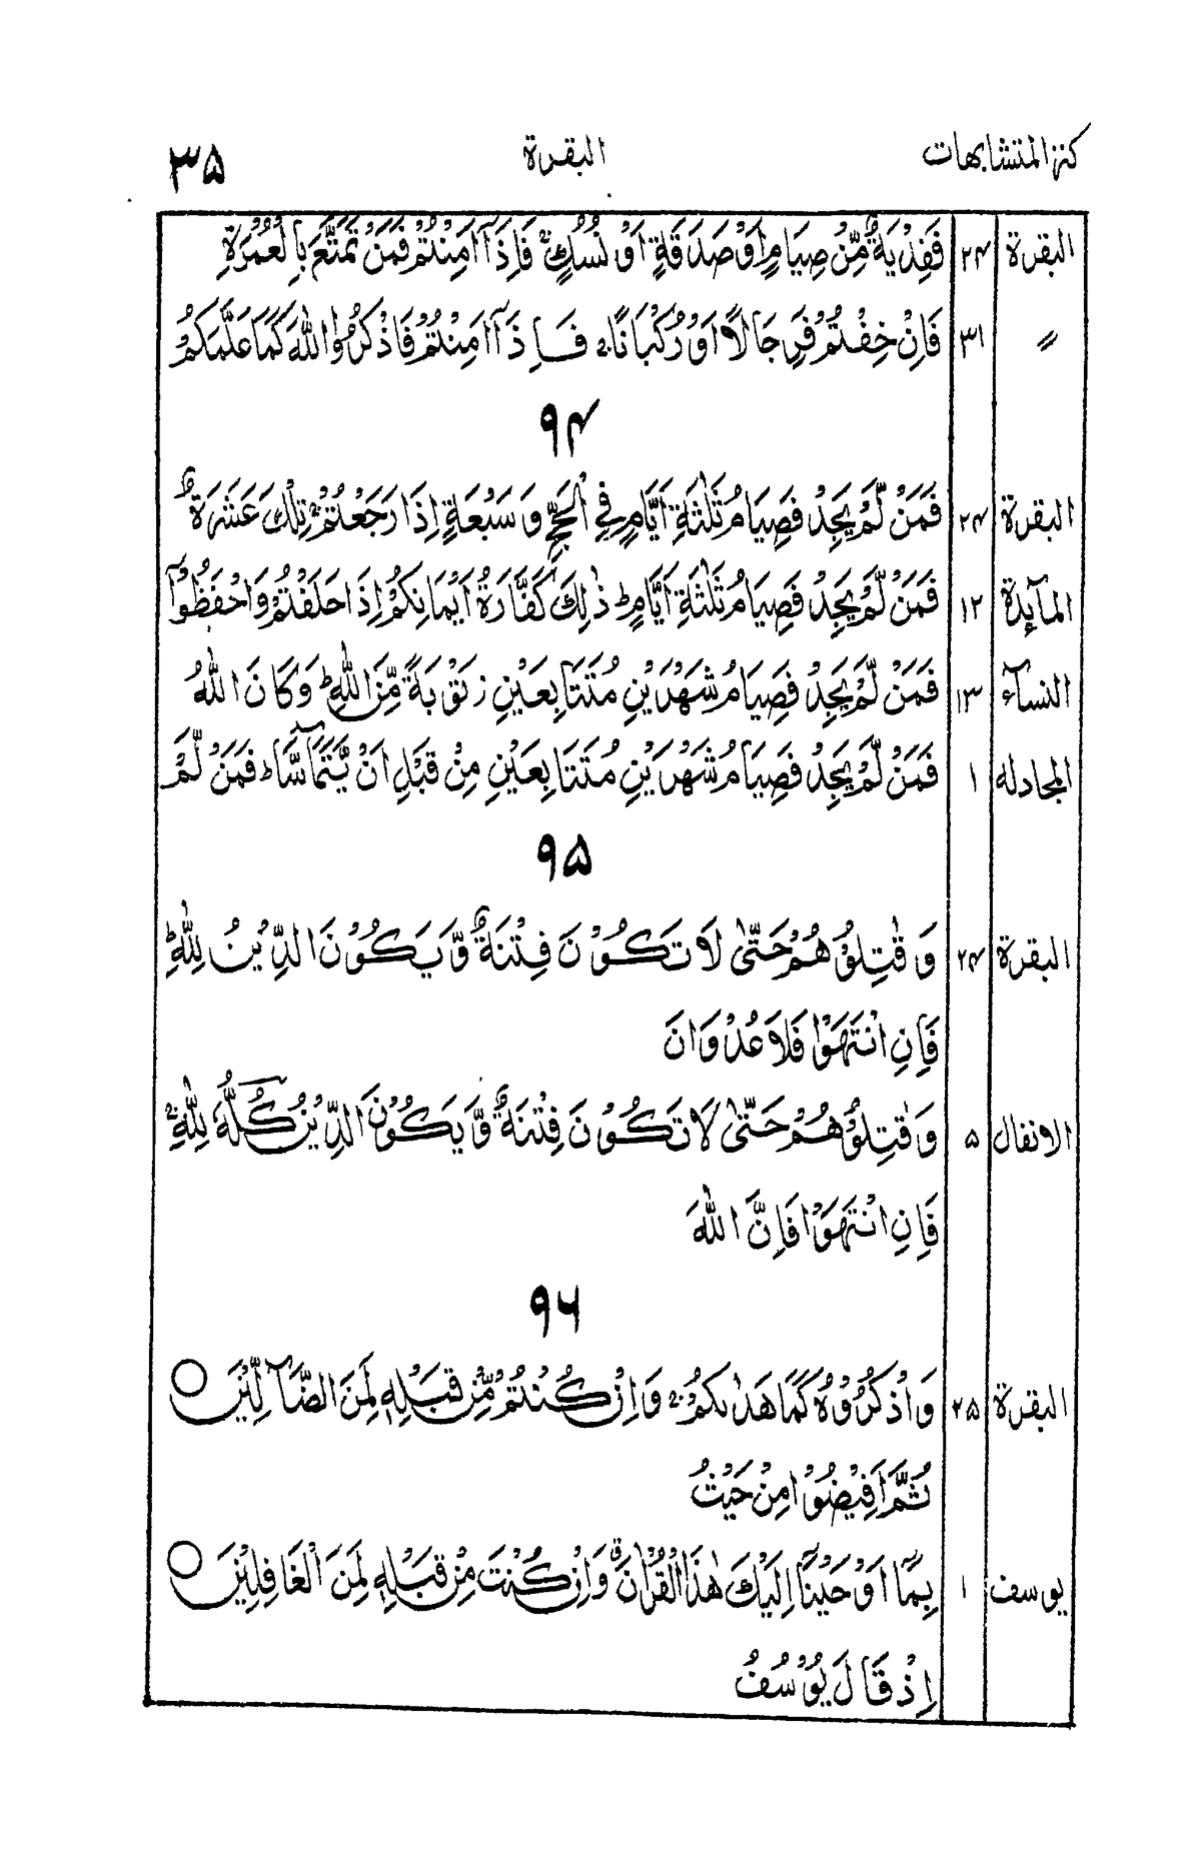 كنز المتشابهات البقرة ۳۵
البقرة ۲۴ فَفِدْيَةٌ مِّنْ صِيَامٍ اَوْ صَدَقَةٍ اَوْ نُسُكٍ ۚ فَاِذَآ اَمِنْتُمْ فَمَنْ تَمَتَّعَ بِالْعُمْرَةِ
〃 ۳۱ فَاِنْ خِفْتُمْ فَرِجَالًا اَوْ رُكْبَانًا ۚ فَاِذَآ اَمِنْتُمْ فَاذْكُرُوا اللّٰهَ كَمَا عَلَّمَكُمْ
۹۴
البقرة ۲۴ فَمَنْ لَّمْ يَجِدْ فَصِيَامُ ثَلٰثَةِ اَيَّامٍ فِي الْحَجِّ وَ سَبْعَةٍ اِذَا رَجَعْتُمْ ؕ تِلْكَ عَشَرَةٌ
المآىِٕدة ۱۲ فَمَنْ لَّمْ يَجِدْ فَصِيَامُ ثَلٰثَةِ اَيَّامٍ ؕ ذٰلِكَ كَفَّارَةُ اَيْمَانِكُمْ اِذَا حَلَفْتُمْ ؕ وَاحْفَظُوْٓا
النسآء ۱۳ فَمَنْ لَّمْ يَجِدْ فَصِيَامُ شَهْرَيْنِ مُتَتَابِعَيْنِ ز تَوْبَةً مِّنَ اللّٰهِ ؕ وَكَانَ اللّٰهُ
المجادلة ۱ فَمَنْ لَّمْ يَجِدْ فَصِيَامُ شَهْرَيْنِ مُتَتَابِعَيْنِ مِنْ قَبْلِ اَنْ يَّتَمَآسَّا ؕ فَمَنْ لَّمْ
۹۵
البقرة ۲۴ وَ قٰتِلُوْهُمْ حَتّٰى لَا تَكُوْنَ فِتْنَةٌ وَّيَكُوْنَ الدِّيْنُ لِلّٰهِ ؕ
فَاِنِ انْتَهَوْا فَلَا عُدْوَانَ
الانفال ۵ وَ قٰتِلُوْهُمْ حَتّٰى لَا تَكُوْنَ فِتْنَةٌ وَّيَكُوْنَ الدِّيْنُ كُلُّهٗ لِلّٰهِ ۚ
فَاِنِ انْتَهَوْا فَاِنَّ اللّٰهَ
۹۶
البقرة ۲۵ وَاذْكُرُوْهُ كَمَا هَدٰىكُمْ ۚ وَاِنْ كُنْتُمْ مِّنْ قَبْلِهٖ لَمِنَ الضَّآلِّيْنَ ○
ثُمَّ اَفِيْضُوْا مِنْ حَيْثُ
يوسف ۱ بِمَآ اَوْحَيْنَآ اِلَيْكَ هٰذَا الْقُرْاٰنَ ۖ وَاِنْ كُنْتَ مِنْ قَبْلِهٖ لَمِنَ الْغَافِلِيْنَ ○
اِذْ قَالَ يُوْسُفُ